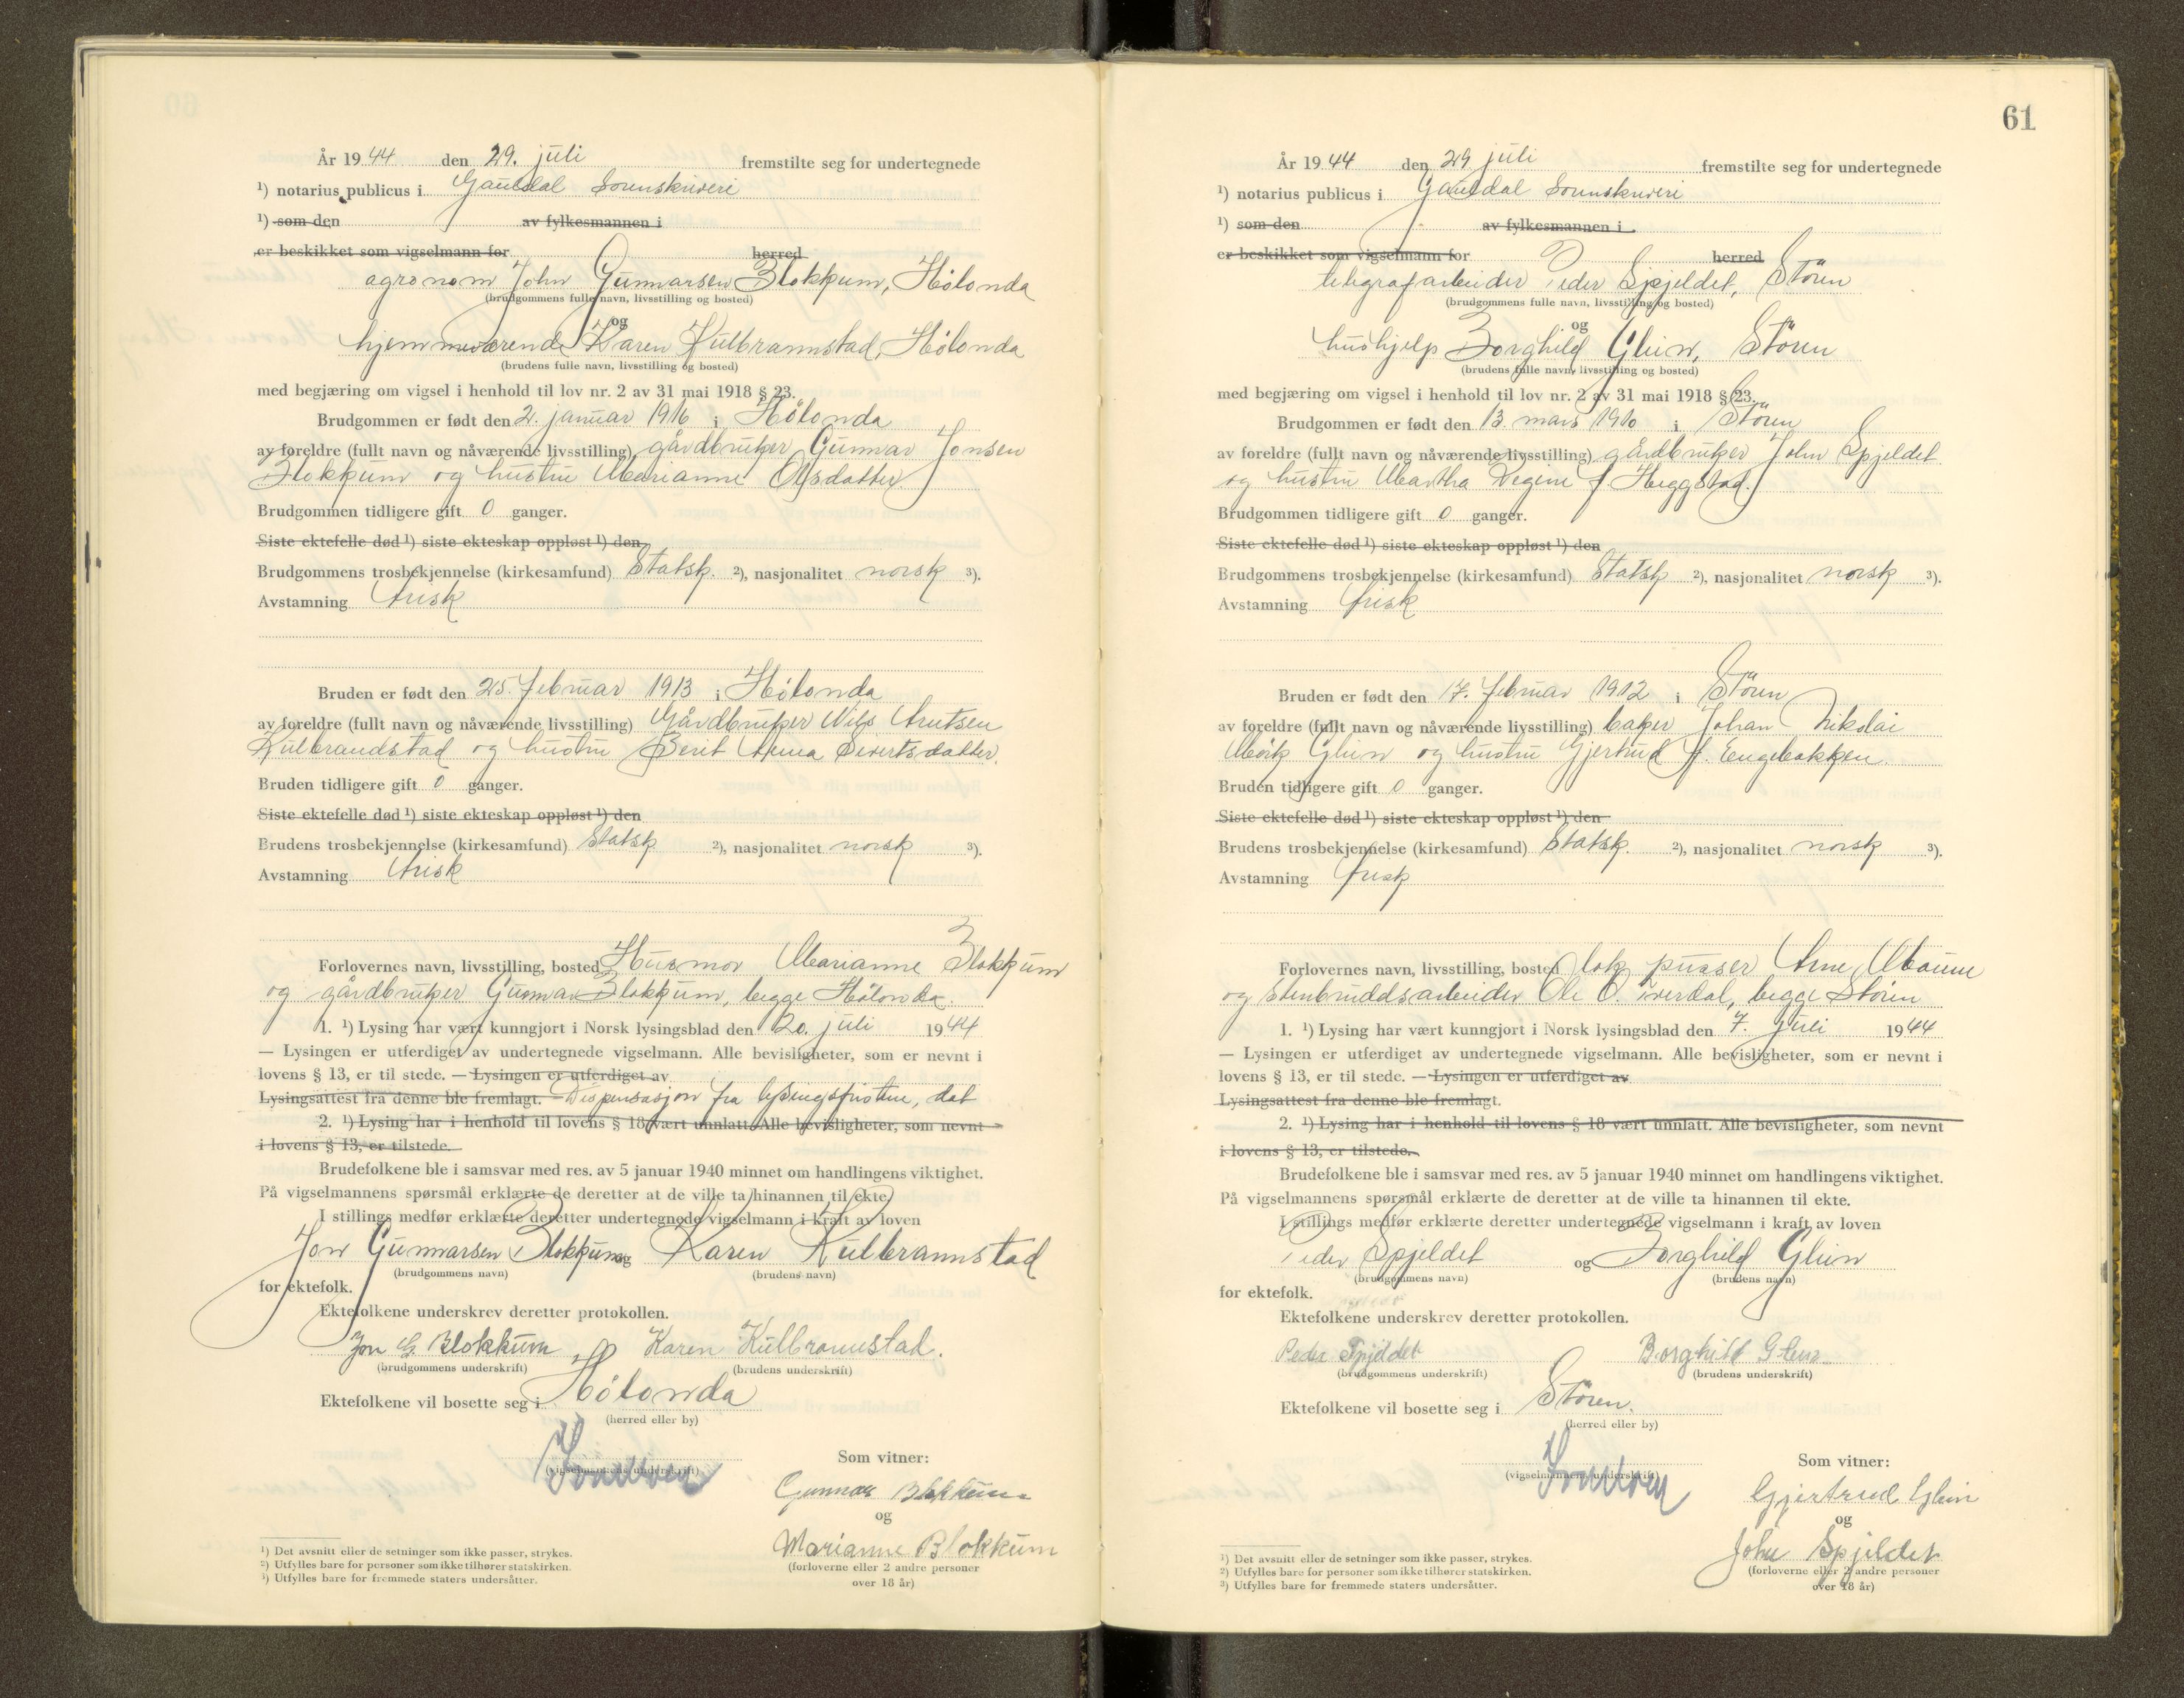 År 1944 den 29. juli fremstilte seg for undertegnede
¹) notarius publicus i Gauldal Sorenskriveri
¹) som den av fylkesmannen i
er beskikket som vigselmann for herred
agronom John Gunnarsen Blokkum, Hölonda
(brudgommens fulle navn, livsstilling og bosted)
og
hjemmeværende Karen Kulbrannstad, Hölonda
(brudens fulle navn, livsstilling og bosted)
med begjæring om vigsel i henhold til lov nr. 2 av 31 mai 1918 § 23.
Brudgommen er født den 2. januar 1916 i Hölonda
av foreldre (fullt navn og nåværende livsstilling) gårdbruker Gunnar Jonsen
Blokkum og hustru Marianne Olsdatter
Brudgommen tidligere gift 0 ganger.
Siste ektefelle død ¹) siste ekteskap oppløst ¹) den
Brudgommens trosbekjennelse (kirkesamfund) Statsk. ²), nasjonalitet norsk ³).
Avstamning Arisk
Bruden er født den 25. februar 1913 i Hölonda
av foreldre (fullt navn og nåværende livsstilling) Gårdbruker Nils Arntsen
Kulbrandstad og hustru Berit Anna Sivertsdatter.
Bruden tidligere gift 0 ganger.
Siste ektefelle død ¹) siste ekteskap oppløst ¹) den
Brudens trosbekjennelse (kirkesamfund) Statsk ²), nasjonalitet norsk ³).
Avstamning Arisk
Forlovernes navn, livsstilling, bosted Husmor Marianne Blokkum
og gårdbruker Gunnar Blokkum, begge Hölonda.
1. ¹) Lysing har vært kunngjort i Norsk lysingsblad den 20. juli 1944
— Lysingen er utferdiget av undertegnede vigselmann. Alle bevisligheter, som er nevnt i
lovens § 13, er til stede. — Lysingen er utferdiget av
Lysingsattest fra denne ble fremlagt. Dispensasjon fra lysingsfristen, dat
2. ¹) Lysing har i henhold til lovens § 18 vært unnlatt. Alle bevisligheter, som nevnt
i lovens § 13, er tilstede.
Brudefolkene ble i samsvar med res. av 5 januar 1940 minnet om handlingens viktighet.
På vigselmannens spørsmål erklærte de deretter at de ville ta hinannen til ekte.
I stillings medfør erklærte deretter undertegnede vigselmann i kraft av loven
Jon Gunnarsen Blokkum og Karen Kulbrannstad
(brudgommens navn) (brudens navn)
for ektefolk.
Ektefolkene underskrev deretter protokollen.
Jon G Blokkum Karen Kulbrannstad.
(brudgommens underskrift) (brudens underskrift)
Ektefolkene vil bosette seg i Hölonda
(herred eller by)
Som vitner:
(vigselmannens underskrift)
Gunnar Blokkum
og
Marianne Blokkum
(forloverne eller 2 andre personer
over 18 år)
¹) Det avsnitt eller de setninger som ikke passer, strykes.
²) Utfylles bare for personer som ikke tilhører statskirken.
³) Utfylles bare for fremmede staters undersåtter.
61
År 1944 den 29 juli fremstilte seg for undertegnede
¹) notarius publicus i Gauldal Sorenskriveri
¹) som den av fylkesmannen i
er beskikket som vigselmann for herred
telegrafarbeider Peder Spjeldet, Stören
(brudgommens fulle navn, livsstilling og bosted)
og
hushjelp Borghild Glein, Stören
(brudens fulle navn, livsstilling og bosted)
med begjæring om vigsel i henhold til lov nr. 2 av 31 mai 1918 § 23.
Brudgommen er født den 13. mars 1910 i Stören
av foreldre (fullt navn og nåværende livsstilling) gårdbruker John Spjeldet
og hustru Martha Regine f Heggstad.
Brudgommen tidligere gift 0 ganger.
Siste ektefelle død ¹) siste ekteskap oppløst ¹) den
Brudgommens trosbekjennelse (kirkesamfund) Statsk ²), nasjonalitet norsk ³).
Avstamning Arisk
Bruden er født den 17. februar 1912 i Stören
av foreldre (fullt navn og nåværende livsstilling) baker Johan Nikolai
Mörk Glein og hustru Gjertrud f. Engebakken.
Bruden tidligere gift 0 ganger.
Siste ektefelle død ¹) siste ekteskap oppløst ¹) den
Brudens trosbekjennelse (kirkesamfund) Statsk. ²), nasjonalitet norsk ³).
Avstamning Arisk
Forlovernes navn, livsstilling, bosted lok pusser Arne Moum
og Stenbruddsarbeider Ole O. Tverdal, begge Stören
1. ¹) Lysing har vært kunngjort i Norsk lysingsblad den 7. juli 1944
— Lysingen er utferdiget av undertegnede vigselmann. Alle bevisligheter, som er nevnt i
lovens § 13, er til stede. — Lysingen er utferdiget av
Lysingsattest fra denne ble fremlagt.
2. ¹) Lysing har i henhold til lovens § 18 vært unnlatt. Alle bevisligheter, som nevnt
i lovens § 13, er tilstede.
Brudefolkene ble i samsvar med res. av 5 januar 1940 minnet om handlingens viktighet.
På vigselmannens spørsmål erklærte de deretter at de ville ta hinannen til ekte.
I stillings medfør erklærte deretter undertegnede vigselmann i kraft av loven
Peder Spjeldet og Borghild Glein
(brudgommens navn) (brudens navn)
for ektefolk.
Ektefolkene underskrev deretter protokollen.
Peder Spjeldet Borghild Glein
(brudgommens underskrift) (brudens underskrift)
Ektefolkene vil bosette seg i Stören.
(herred eller by)
Som vitner:
(vigselmannens underskrift)
Gjertrud Glein
og
John Spjeldet
(forloverne eller 2 andre personer
over 18 år)
¹) Det avsnitt eller de setninger som ikke passer, strykes.
²) Utfylles bare for personer som ikke tilhører statskirken.
³) Utfylles bare for fremmede staters undersåtter.